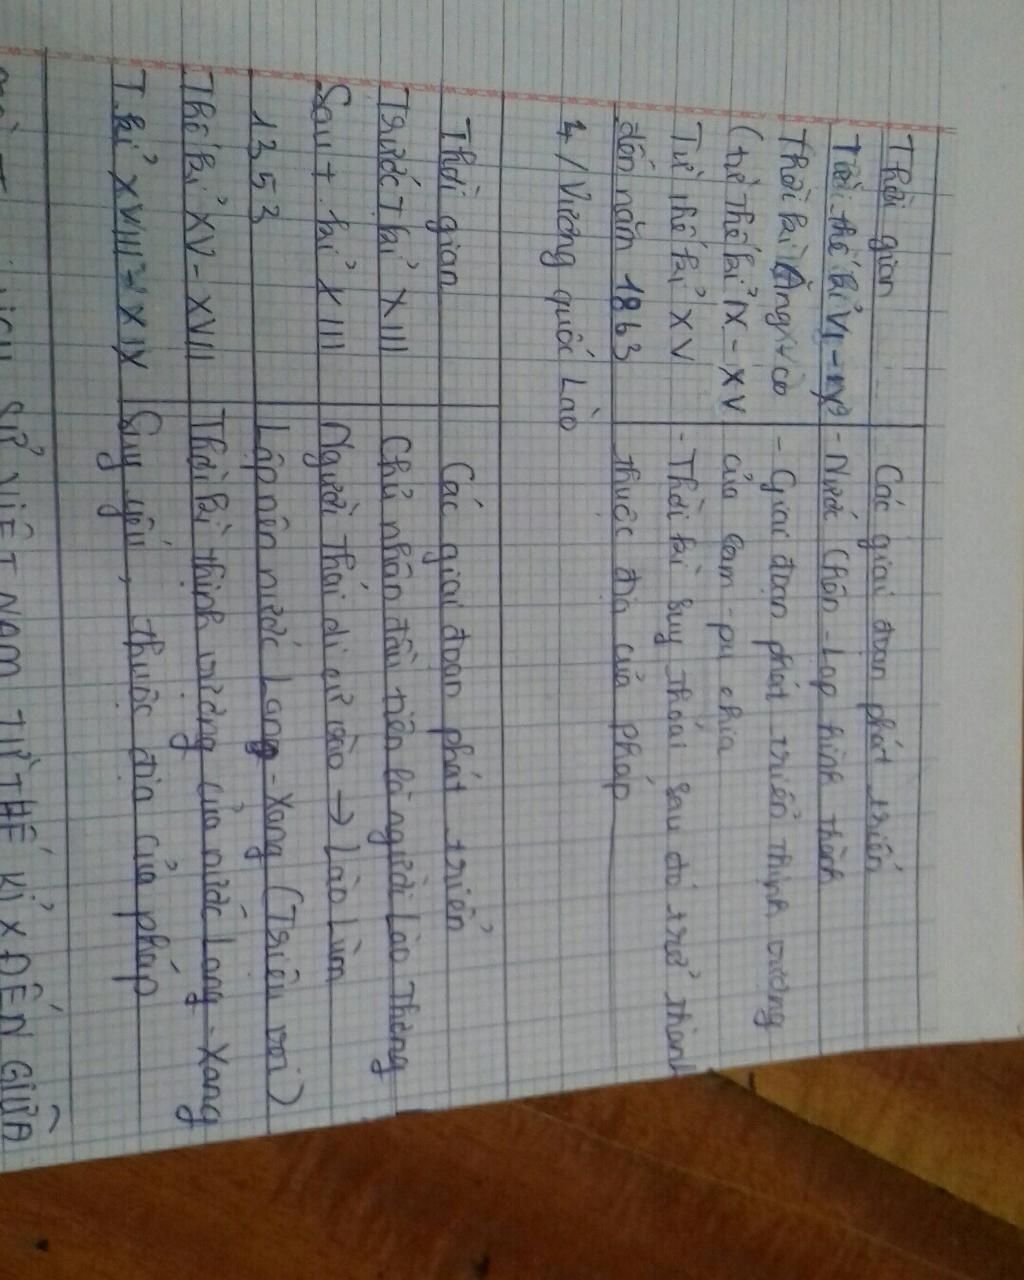 Thời gian Các giai đoạn phát triển
Từ thế kỉ VI - - Nước Chân - Lạp hình thành
Thời kì Ăngkco - Giai đoạn phát triển thịnh vượng
(từ thế kỉ IX - XV của Cam - pu chia
Từ thế kỉ XV - Thời kì suy thoái sau đó trở thành
đến năm 1863 thuộc địa của pháp
4/ Vương quốc Lào
Thời gian Các giai đoạn phát triển
Trước T kỉ XIII Chủ nhân đầu tiên là người Lào Thơng
Sau t. kỉ XIII Người Thái di cư vào → Lào Lùm
1353 Lập nên nước Lang - Xang (Triệu voi)
Thế kỉ XV - XVII Thời kì thịnh vượng của nước Lang - Xang
T.kỉ XVIII - XIX Suy yếu, thuộc địa của pháp
SỬ VIỆT NAM TỪ THẾ KỈ X ĐẾN GIỮA